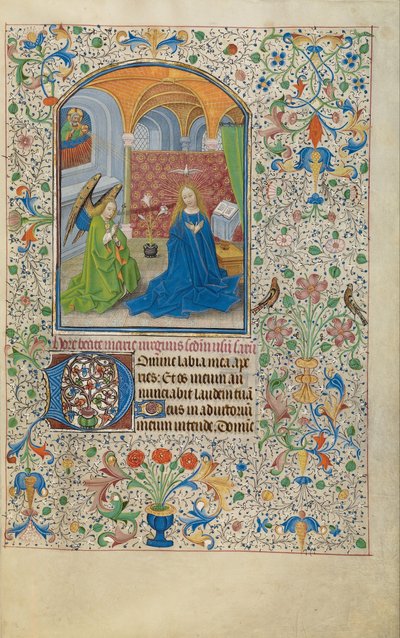 Hore beate marie virginis scdm usu sarū
Domine labia mea ape
ries: Et os meum an
nunciabit laudem tuā
Deus in adiutoriū
meum intende. Domie